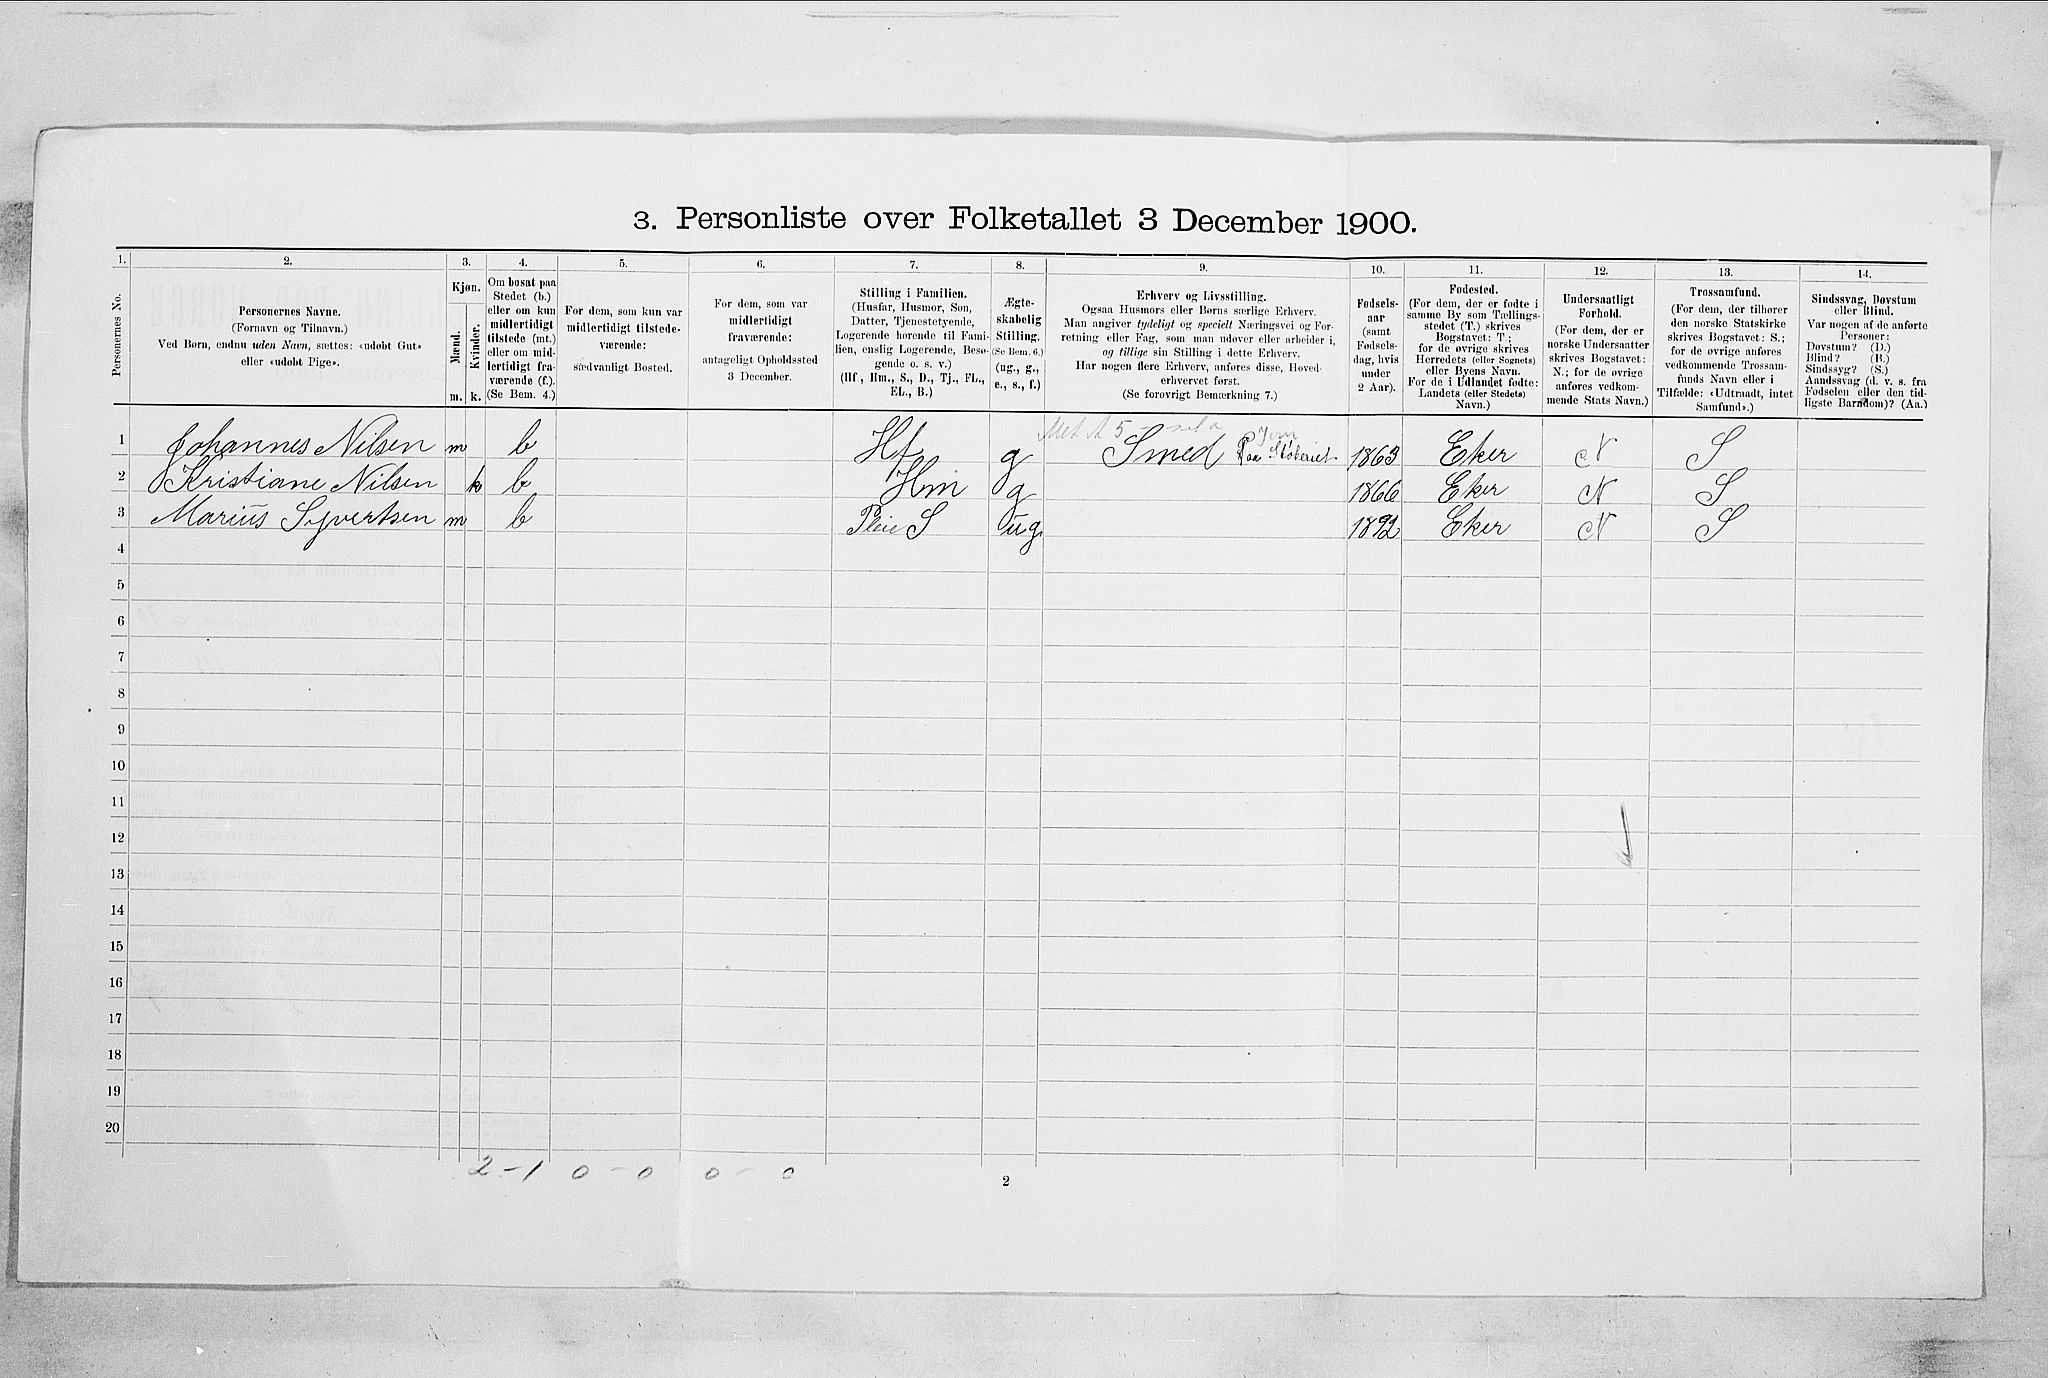 3. Personliste over Folketallet 3 December 1900.
1. 2. 3. 4. 5. 6. 7. 8. 9. 10. 11. 12. 13. 14.
Personernes No.
Personernes Navne.
(Fornavn og Tilnavn.)
Ved Børn, endnu uden Navn, sættes: «udøbt Gut»
eller «udøbt Pige».
Kjøn.
Mænd.
Kvinder.
m. k.
Om bosat paa
Stedet (b.)
eller om kun
midlertidigt
tilstede (mt.)
eller om mid-
lertidigt fra-
værende (f.).
(Se Bem. 4.)
For dem, som kun var
midlertidigt tilstede-
værende:
sædvanligt Bosted.
For dem, som var
midlertidigt
fraværende:
antageligt Opholdssted
3 December.
Stilling i Familien.
(Husfar, Husmor, Søn,
Datter, Tjenestetyende,
Logerende hørende til Fami-
lien, enslig Logerende, Besø-
gende o. s. v.)
(Hf., Hm., S., D., Tj., FL.,
EL., B.)
Ægte-
skabelig
Stilling.
(Se Bem. 6.)
(ug., g.,
e., s., f.)
Erhverv og Livsstilling.
Ogsaa Husmors eller Børns særlige Erhverv.
Man angiver tydeligt og specielt Næringsvei og For-
retning eller Fag, som man udøver eller arbeider i,
og tillige sin Stilling i dette Erhverv.
Har nogen flere Erhverv, anføres disse, Hoved-
erhvervet først.
(Se forøvrigt Bemærkning 7.)
Fødsels-
aar
(samt
Fødsels-
dag, hvis
under
2 Aar).
Fødested.
(For dem, der er fødte i
samme By som Tællings-
stedet (T.) skrives
Bogstavet: T.;
for de øvrige skrives
Herredets (eller Sognets)
eller Byens Navn.
For de i Udlandet fødte:
Landets (eller Stedets)
Navn.)
Undersaatligt
Forhold.
(For dem, der er
norske Undersaatter
skrives Bogstavet:
N.; for de øvrige
anføres vedkom-
mende Stats Navn.)
Trossamfund.
(For dem, der tilhører
den norske Statskirke
skrives Bogstavet: S.;
for de øvrige anføres
vedkommende Trossam-
funds Navn eller i
Tilfælde: «Udtraadt, intet
Samfund».)
Sindssvag, Døvstum
eller Blind.
Var nogen af de anførte
Personer:
Døvstum? (D.)
Blind? (B.)
Sindssyg? (S.)
Aandssvag (d. v. s. fra
Fødselen eller den tid-
ligste Barndom)? (Aa.)
1 Johannes Nilsen m b Hf g Smed Paa Jern Støberiet 1863 Eker N S
2 Kristiane Nilsen k b Hm g 1866 Eker N S
3 Marius Syvertsen m b Pleie S ug 1892 Eker N S
4
5
6
7
8
9
10
11
12
13
14
15
16
17
18
19
20
2 - 1 0 - 0 0 - 0
2